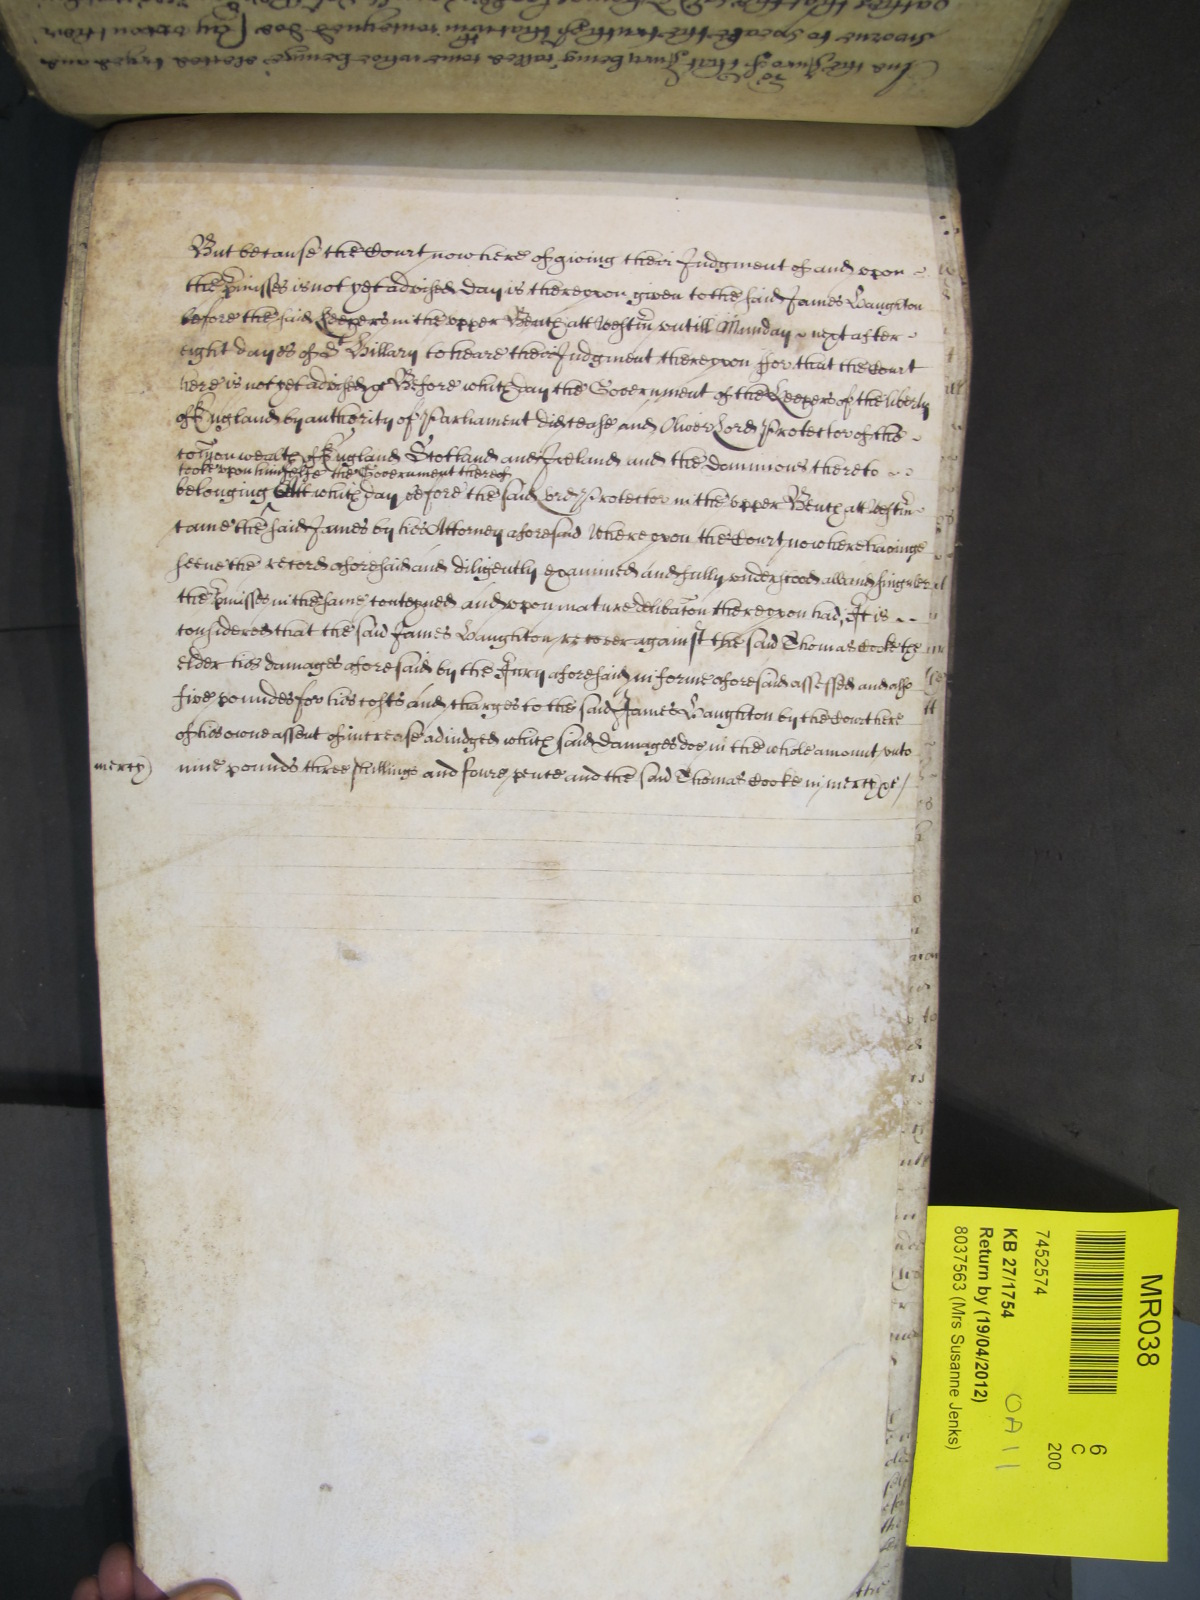 But because the Court now here of giving their Judgment of and upon
the p̄misses is not yet advised Day is thereupon given to the said James Laughton
before the said Keepers in the upper Bench att Westm̄ untill Munday next after
eight dayes of St Hillary to heare their Judgment thereupon for that the Court
here is not yet advised &c Before which day the Government of the Keepers of the liberty
of England by authority of Parliament did cease and Oliver Lord Protector of the
com̄onwealth of England Scotland and Ireland and the Dominions thereto
tooke upon himselfe the Government thereof
belonging Att which day before the said Lord Protector in the upper Bench att Westm̄
came the said James by his Attorney aforesaid Whereupon the Court now here haveinge
seene the record aforesaid and diligently examined and fully understood all and singuler
the p̄misses in the same conteyned and upon mature delibac̄on thereupon had, It is
considered that the said James Laughton recover against the said Thomas Cooke the
elder his damages aforesaid by the Jury aforesaid in forme aforesaid assessed and alsoe
five poundes for his costs and charges to the said James Laughton by the Court here
of his owne assent of increase adiudged which said Damages doe in the whole amount unto
mercy) nine pounds three shillings and foure pence and the said Thomas Cooke in mercy &c/
MR038
6
C
200
7452574
KB 27/1754
OA11
Return by (19/04/2012)
8037563 (Mrs Susanne Jenks)